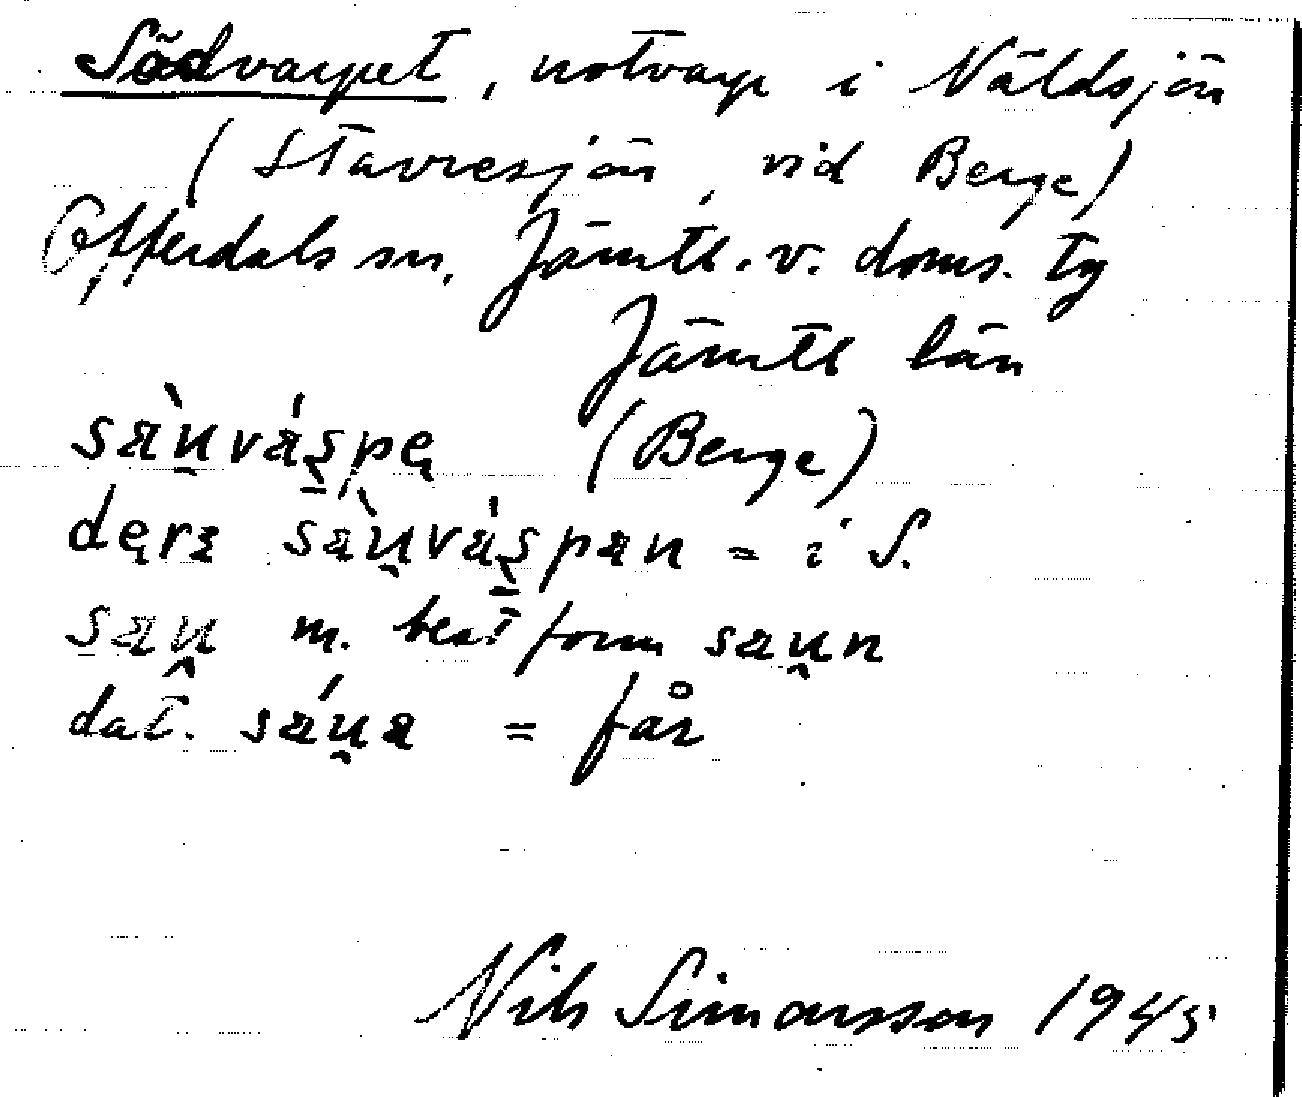 Södvarpet, notvarp i Näldsjön
(Stavresjön, vid Berge)
Offerdals sn. Jämtl. v. doms. tg
Jämtl län
sàu̯vás̱pę (Berge)
dęrɛ sàu̯vás̱pan = i S.
sau̯ m. best form sau̯n
dat. sáu̯a = får
Nils Simonsson 1945